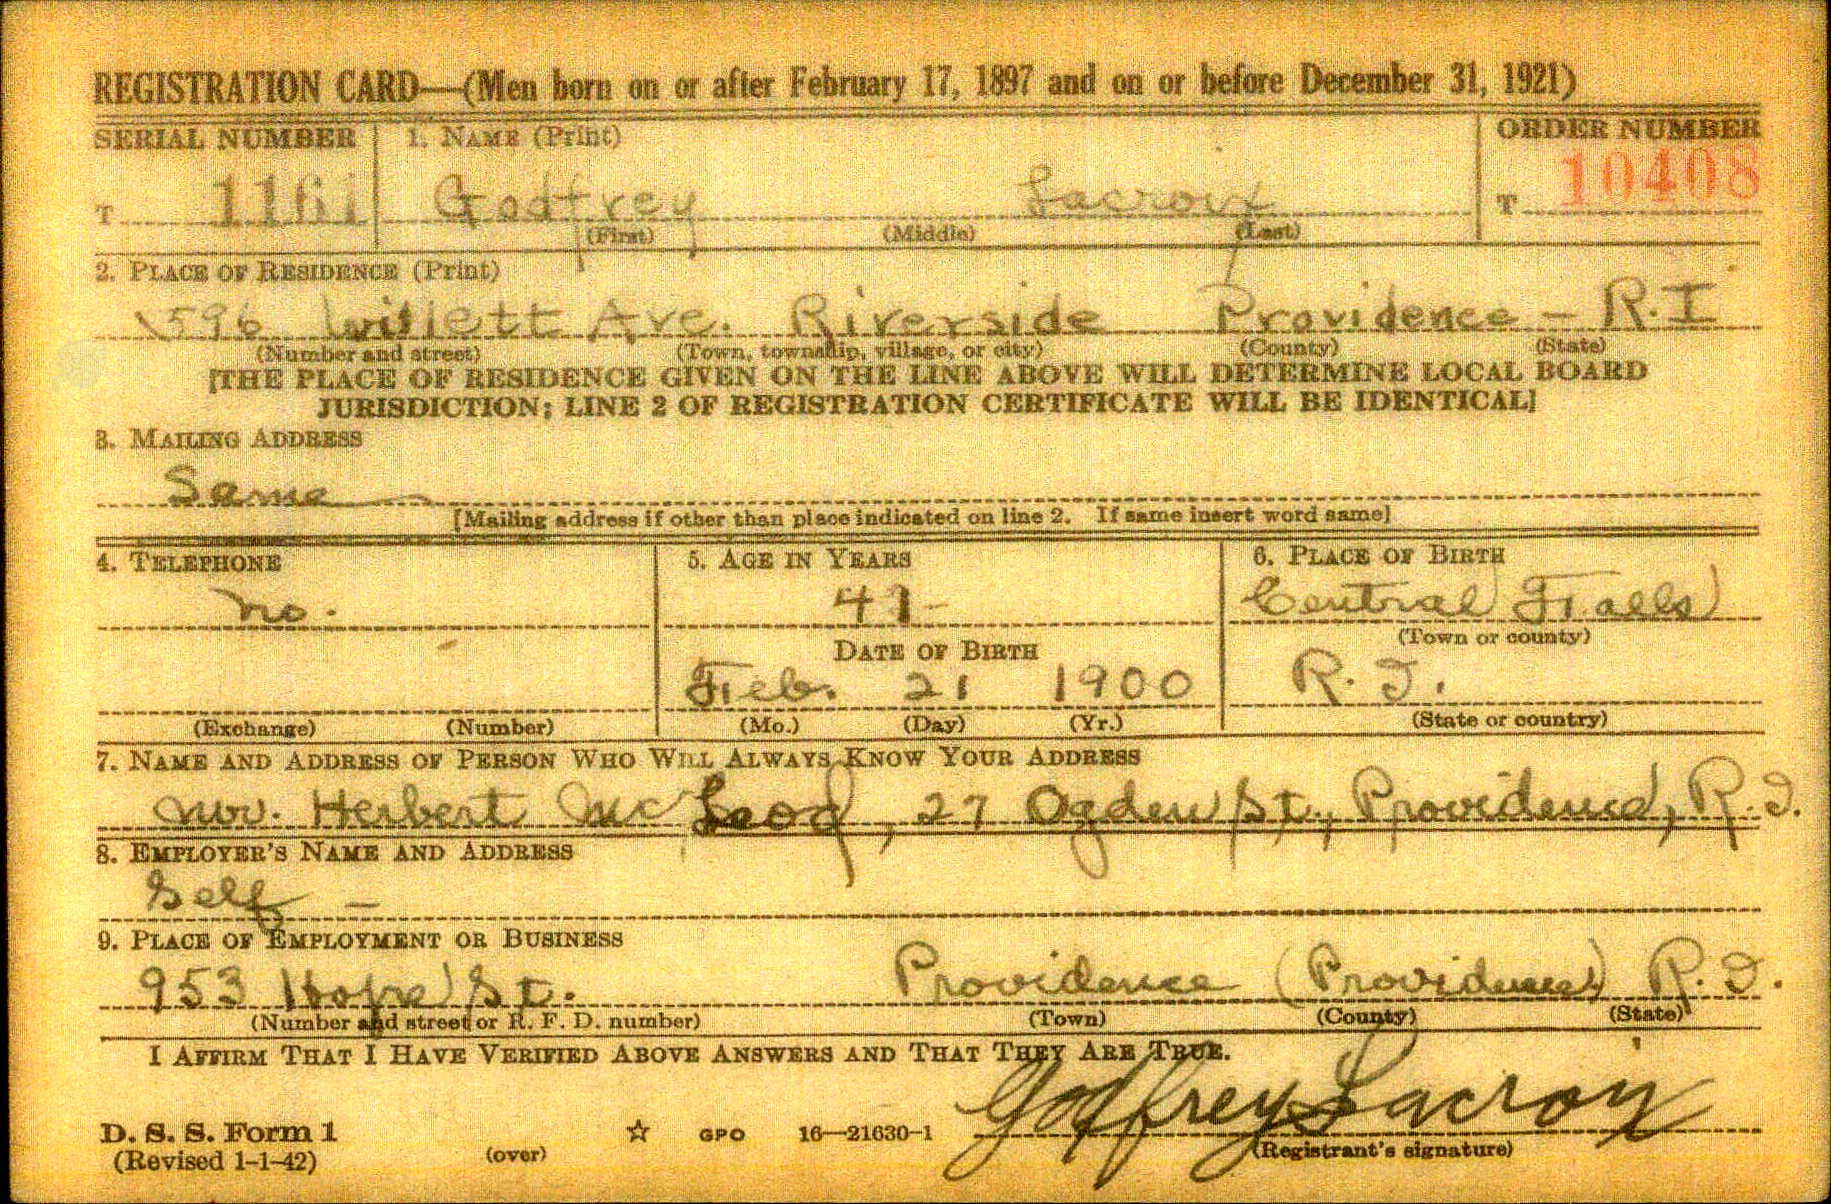 REGISTRATION CARD—(Men born on or after February 17, 1897 and on or before December 31, 1921)
SERIAL NUMBER 1. NAME (Print) ORDER NUMBER
T 1161 Godfrey Lacroix T 10408
(First) (Middle) (Last)
2. PLACE OF RESIDENCE (Print)
596 Willett Ave. Riverside Providence - R.I
(Number and street) (Town, township, village, or city) (County) (State)
[THE PLACE OF RESIDENCE GIVEN ON THE LINE ABOVE WILL DETERMINE LOCAL BOARD
JURISDICTION; LINE 2 OF REGISTRATION CERTIFICATE WILL BE IDENTICAL]
3. MAILING ADDRESS
Same
[Mailing address if other than place indicated on line 2. If same insert word same]
4. TELEPHONE 5. AGE IN YEARS 6. PLACE OF BIRTH
no. 41 Central Falls
(Town or county)
DATE OF BIRTH
Feb. 21 1900 R.I.
(Exchange) (Number) (Mo.) (Day) (Yr.) (State or country)
7. NAME AND ADDRESS OF PERSON WHO WILL ALWAYS KNOW YOUR ADDRESS
Mr. Herbert McLeod, 27 Ogden St., Providence, R.I.
8. EMPLOYER'S NAME AND ADDRESS
Self -
9. PLACE OF EMPLOYMENT OR BUSINESS
953 Hope St. Providence (Providence) R.I.
(Number and street or R. F. D. number) (Town) (County) (State)
I AFFIRM THAT I HAVE VERIFIED ABOVE ANSWERS AND THAT THEY ARE TRUE.
Godfrey Lacroix
D. S. S. Form 1
(Revised 1-1-42) (over) ☆ GPO 16—21630-1 (Registrant's signature)